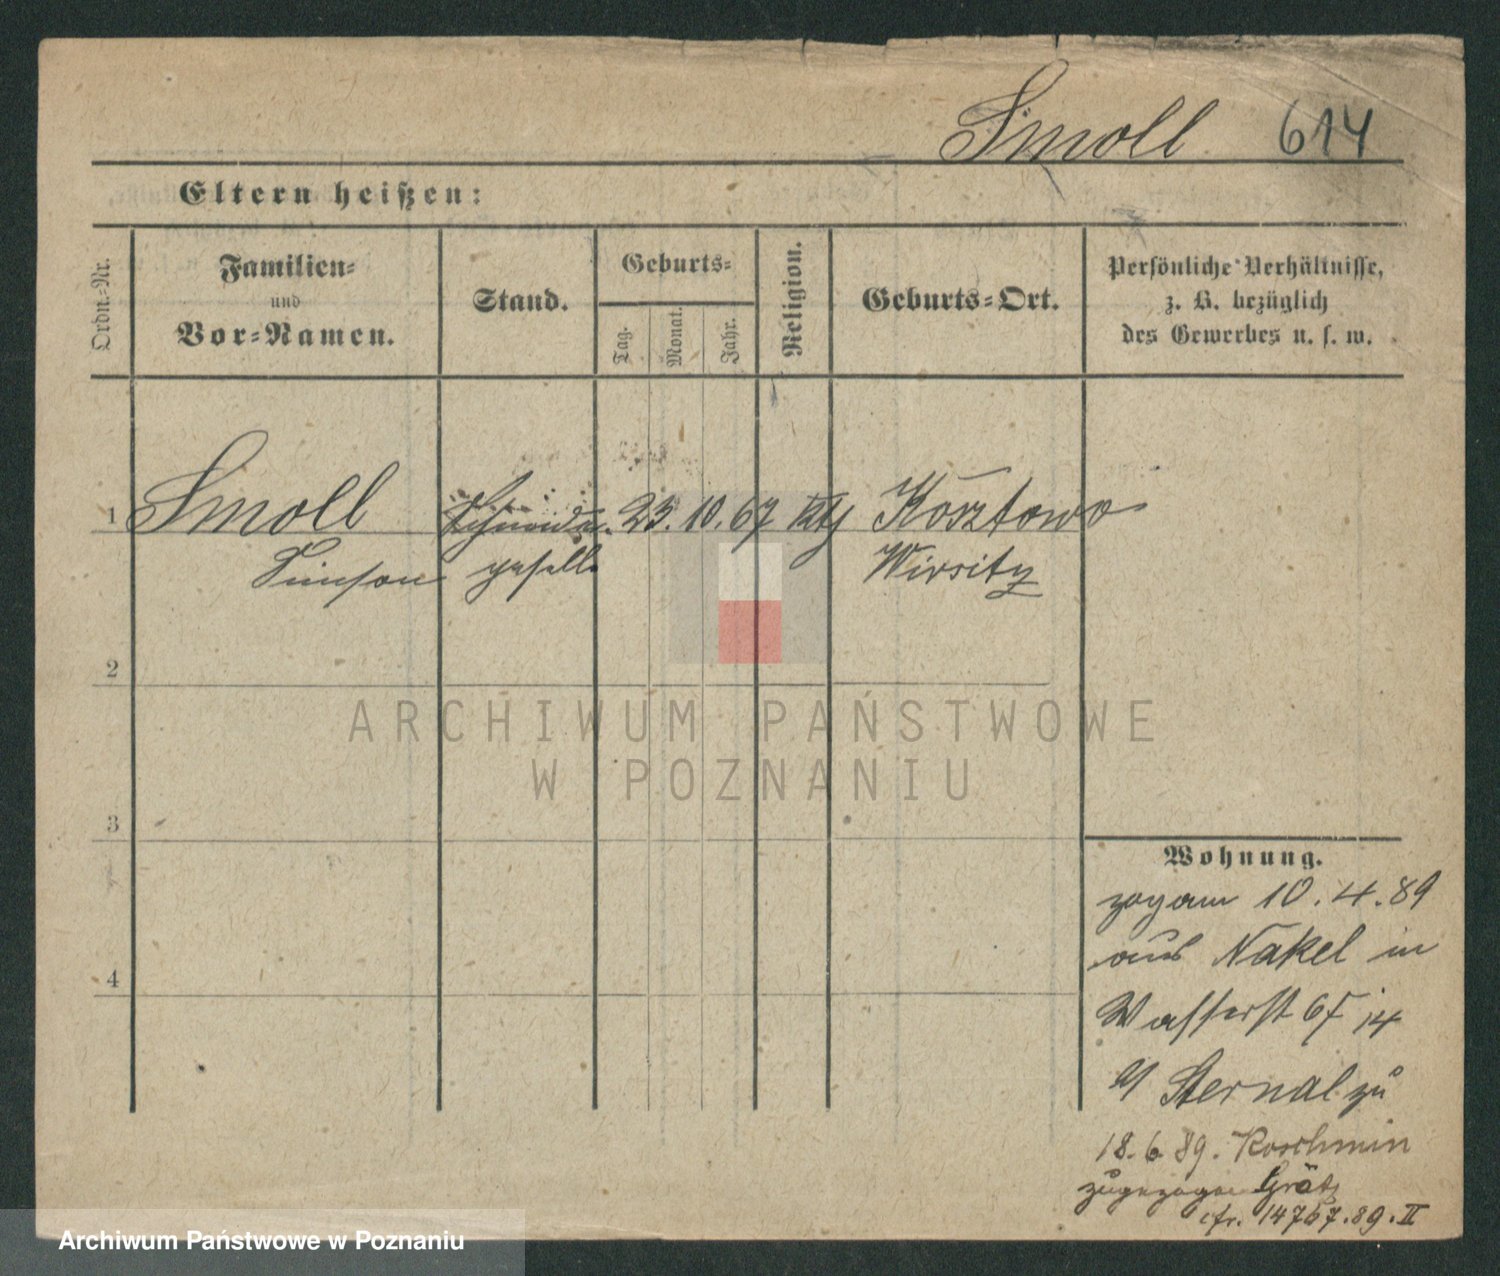 Smoll 614
Eltern heißen:
Ordn.-Nr.
Familien-
und
Vor-Namen.
Stand.
Geburts-
Tag.
Monat.
Jahr.
Religion.
Geburts-Ort.
Persönliche Verhältnisse,
z. B. bezüglich
des Gewerbes u. s. w.
1 Smoll Schneider. 23. 10. 67 Kosztowo
Simson geselle Wirsitz
2
3
4
Wohnung.
zog am 10. 4. 89
aus Nakel in
Wasserst
Sternal zu
18. 6 89. Koschmin
zugezogen Grätz
cfr. 14767. 89. II
ARCHIWUM PAŃSTWOWE
W POZNANIU
Archiwum Państwowe w Poznaniu